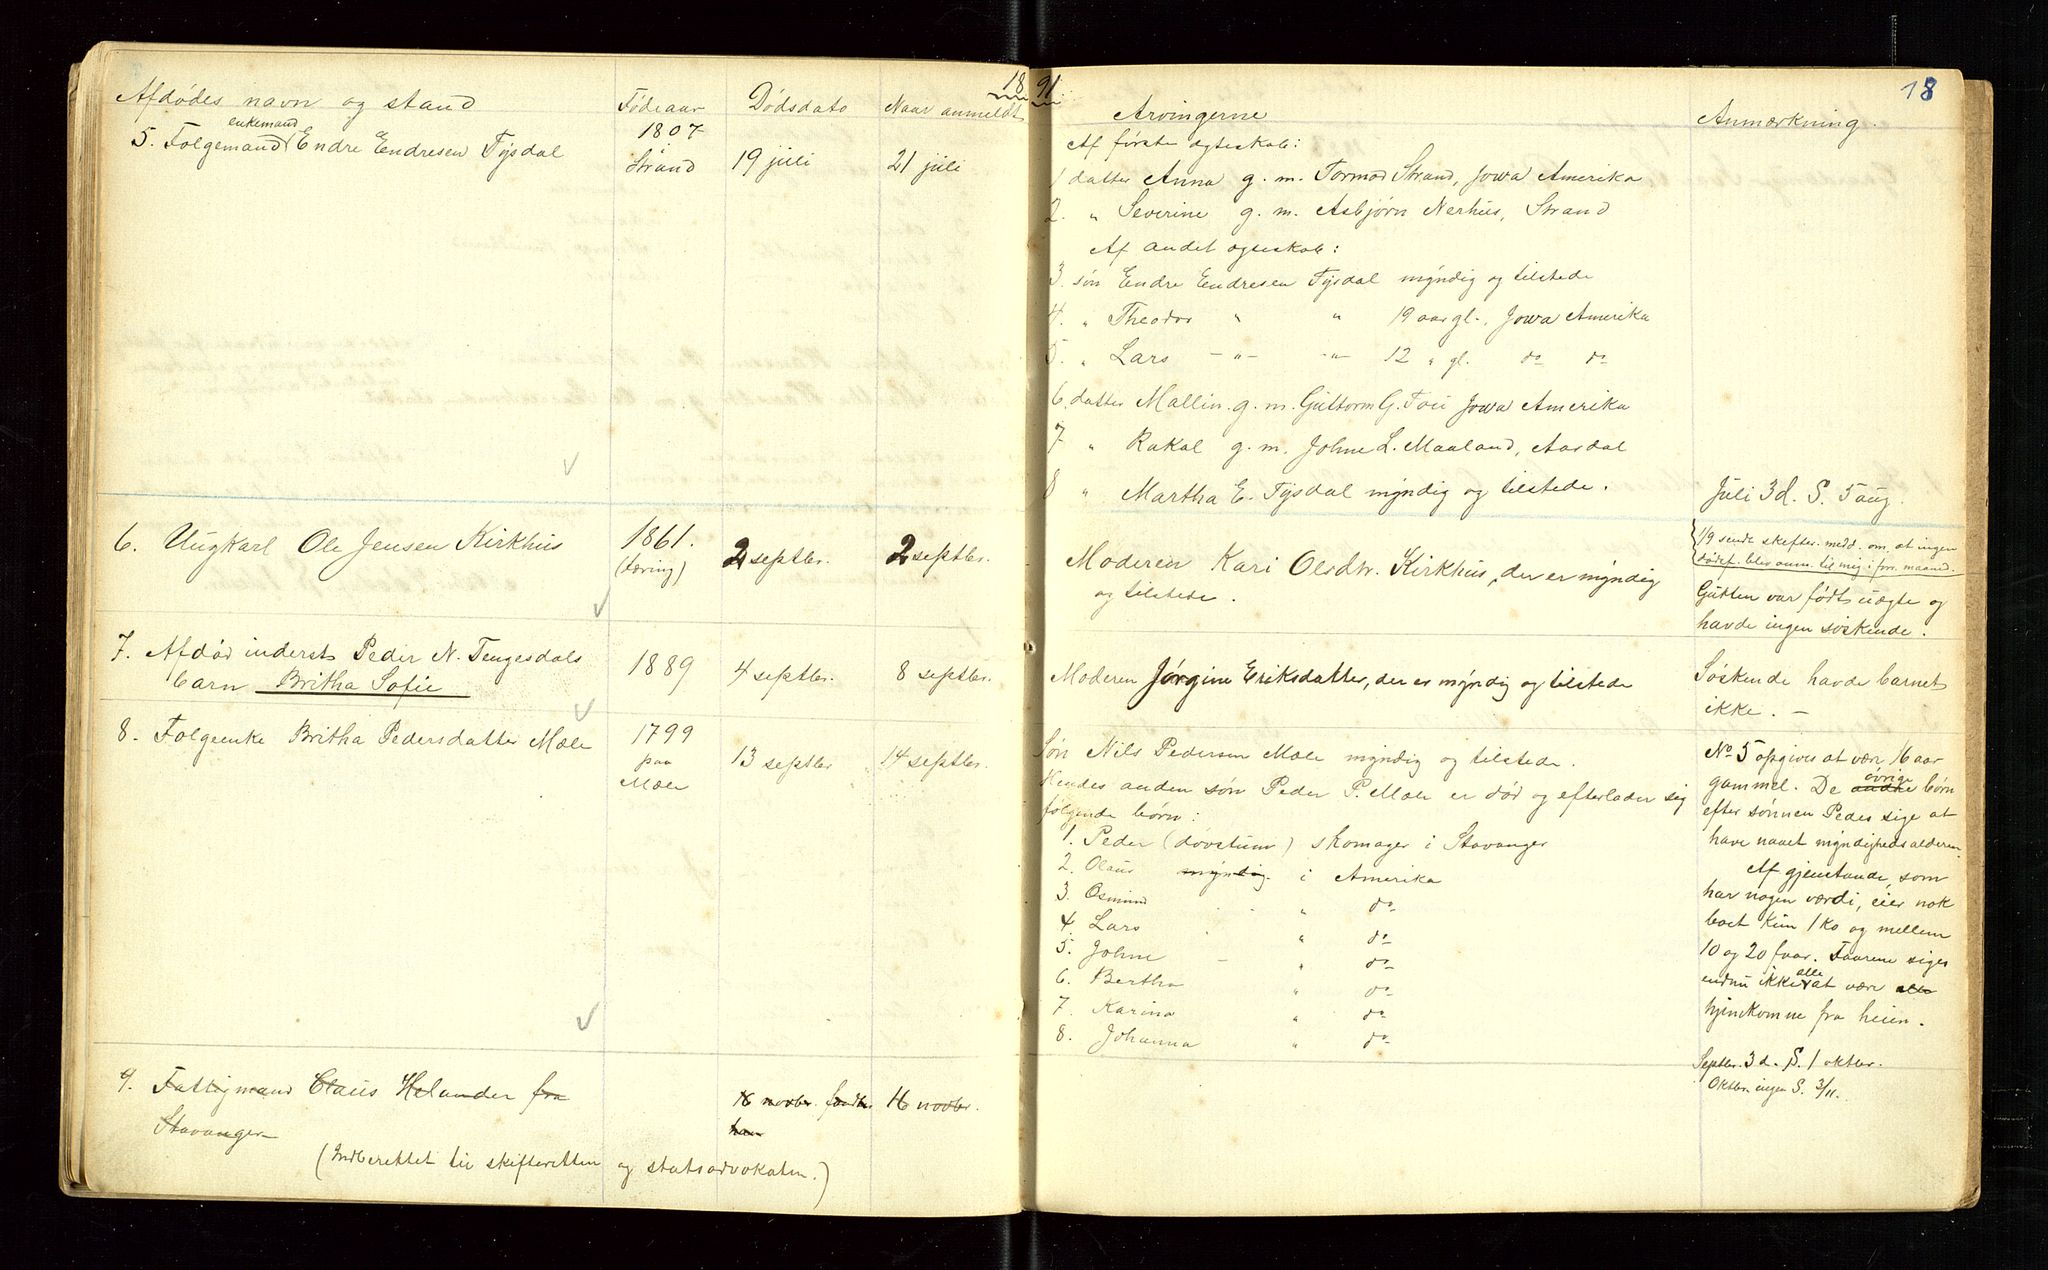 18 91
18
Afdødes navn og stand Fødeaar Dødsdato Naar anmeldt
5. Følgemand enkemand Endre Endresen Tysdal 1807 i Strand 19 juli 21 juli
6. Ungkarl Ole Jensen Kirkhus 1861. (tæring) 2 septbr. 2 septbr.
7. Afdød inderst Peder N. Tengesdals 1889 4 septbr. 8 septbr.
barn Britha Sofie
8. Følgeenke Britha Pedersdatter Mæle 1799 paa Mæle 13 septbr 14 septbr.
9. Fattigmand Claus Helander fra 16 novbr. fandtes 16 novbr.
Stavanger han
(Indberettet til skifteretten og statsadvokaten.)
Arvingerne
Af første ægteskab:
1 datter Anna g. m. Tormod Strand, Jowa Amerika
2. " Severine g. m. Asbjørn Nerhus, Strand
Af andet ægteskab:
3. søn Endre Endresen Tysdal myndig og tilstede
4. " Theodor " " 19 aar gl., Jowa Amerika
5. " Lars -"- -"- 12 " gl. do do
6. datter Mallin g. m. Guttorm G. Tou Jowa Amerika
7 " Rakal g. m. Johne L. Maaland, Aardal
8 " Martha E. Tysdal myndig og tilstede.
Moderen Kari Olsdtr. Kirkhus, der er myndig
og tilstede.
Moderen Jørgine Eriksdatter, der er myndig og tilstede
Søn Nils Pedersen Mæle myndig og tilstede.
Hendes anden søn Peder P. Mæle er død og efterlader sig
følgende børn:
1. Peder (døvstum) skomager i Stavanger
2. Olaus myndig i Amerika
3. Osmund " do
4. Lars " do
5. Johne " do
6. Bertha " do
7. Karina " do
8. Johanna " do
Anmærkning.
Juli 3 d. S. 5 aug.
1/9 sendt skifter. medd. om, at ingen
dødsf. blev anm. til mig i forr. maaned.
Gutten var født uægte og
havde ingen søskende.
Søskende havde barnet
ikke. –
No 5 opgives at være 16 aar
gammel. De andre øvrige børn
efter sønnen Peder sige at
have naaet myndighedsalderen.
Af gjenstande, som
har nogen værdi, eier nok
boet kun 1 ko og mellem
10 og 20 faar. Faarene siges
endnu ikke alle at være alle
hjemkomne fra heien.
Septbr. 3 d. S. 1 oktbr.
Oktbr. ingen S. 3/11.